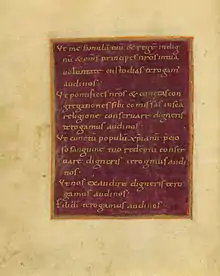 Ut me famulum tuū & regē indig
nū & om̄s principes nr̄os in tua
voluntate custodias te rogam'
audi nos·
Ut pontifices nr̄os & cunctas con
gregationes sibi comissas in sca
religione conseruare digneris
te rogamus audi nos·
Ut cunctū populū xp̄ianū p̄cio
so sanguine tuo redeptū conser
uare digneris te rogamus audi
nos·
Ut nos exaudire digneris te ro
gamus audi nos·
Filii di te rogamus audi nos